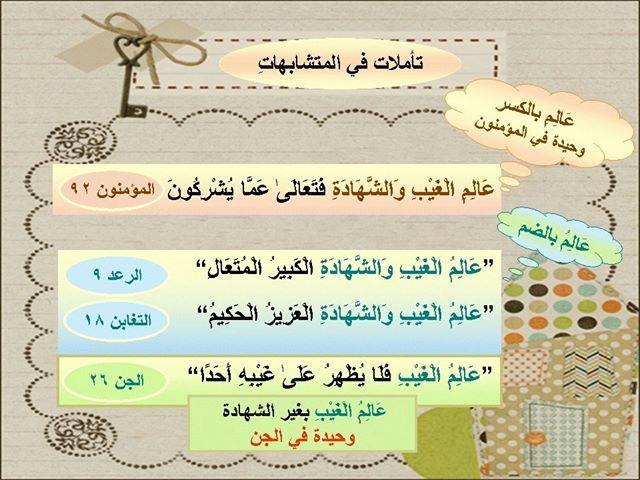 تأملات في المتشابهاتِ
عَالِمِ بالكسر
وحيدة في المؤمنون
عَالِمِ الْغَيْبِ وَالشَّهَادَةِ فَتَعَالَىٰ عَمَّا يُشْرِكُونَ المؤمنون ٩٢
عَالِمُ بالضم
”عَالِمُ الْغَيْبِ وَالشَّهَادَةِ الْكَبِيرُ الْمُتَعَالِ“ الرعد ٩
”عَالِمُ الْغَيْبِ وَالشَّهَادَةِ الْعَزِيزُ الْحَكِيمُ“ التغابن ١٨
”عَالِمُ الْغَيْبِ فَلَا يُظْهِرُ عَلَىٰ غَيْبِهِ أَحَدًا“ الجن ٢٦
عَالِمُ الْغَيْبِ بغير الشهادة
وحيدة في الجن